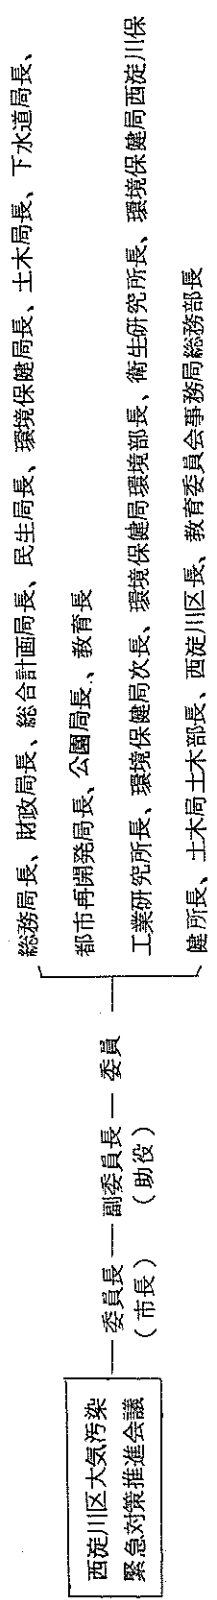 西淀川区大気汚染
緊急対策推進会議
委員長
（市長）
副委員長
（助役）
委員
総務局長、財政局長、総合計画局長、民生局長、環境保健局長、土木局長、下水道局長、
都市再開発局長、公園局長、、教育長
工業研究所長、環境保健局次長、環境保健局環境部長、衛生研究所長、環境保健局西淀川保
健所長、土木局土木部長、西淀川区長、教育委員会事務局総務部長